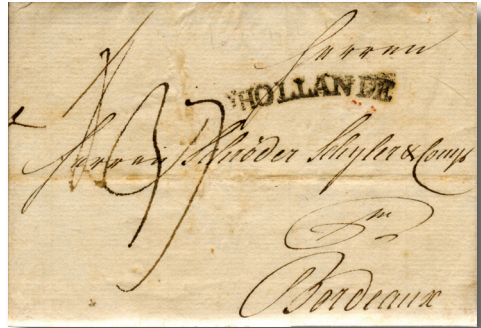 Herren
HOLLANDE
Herren Schröder Schyler & Comp
in
Bordeaux